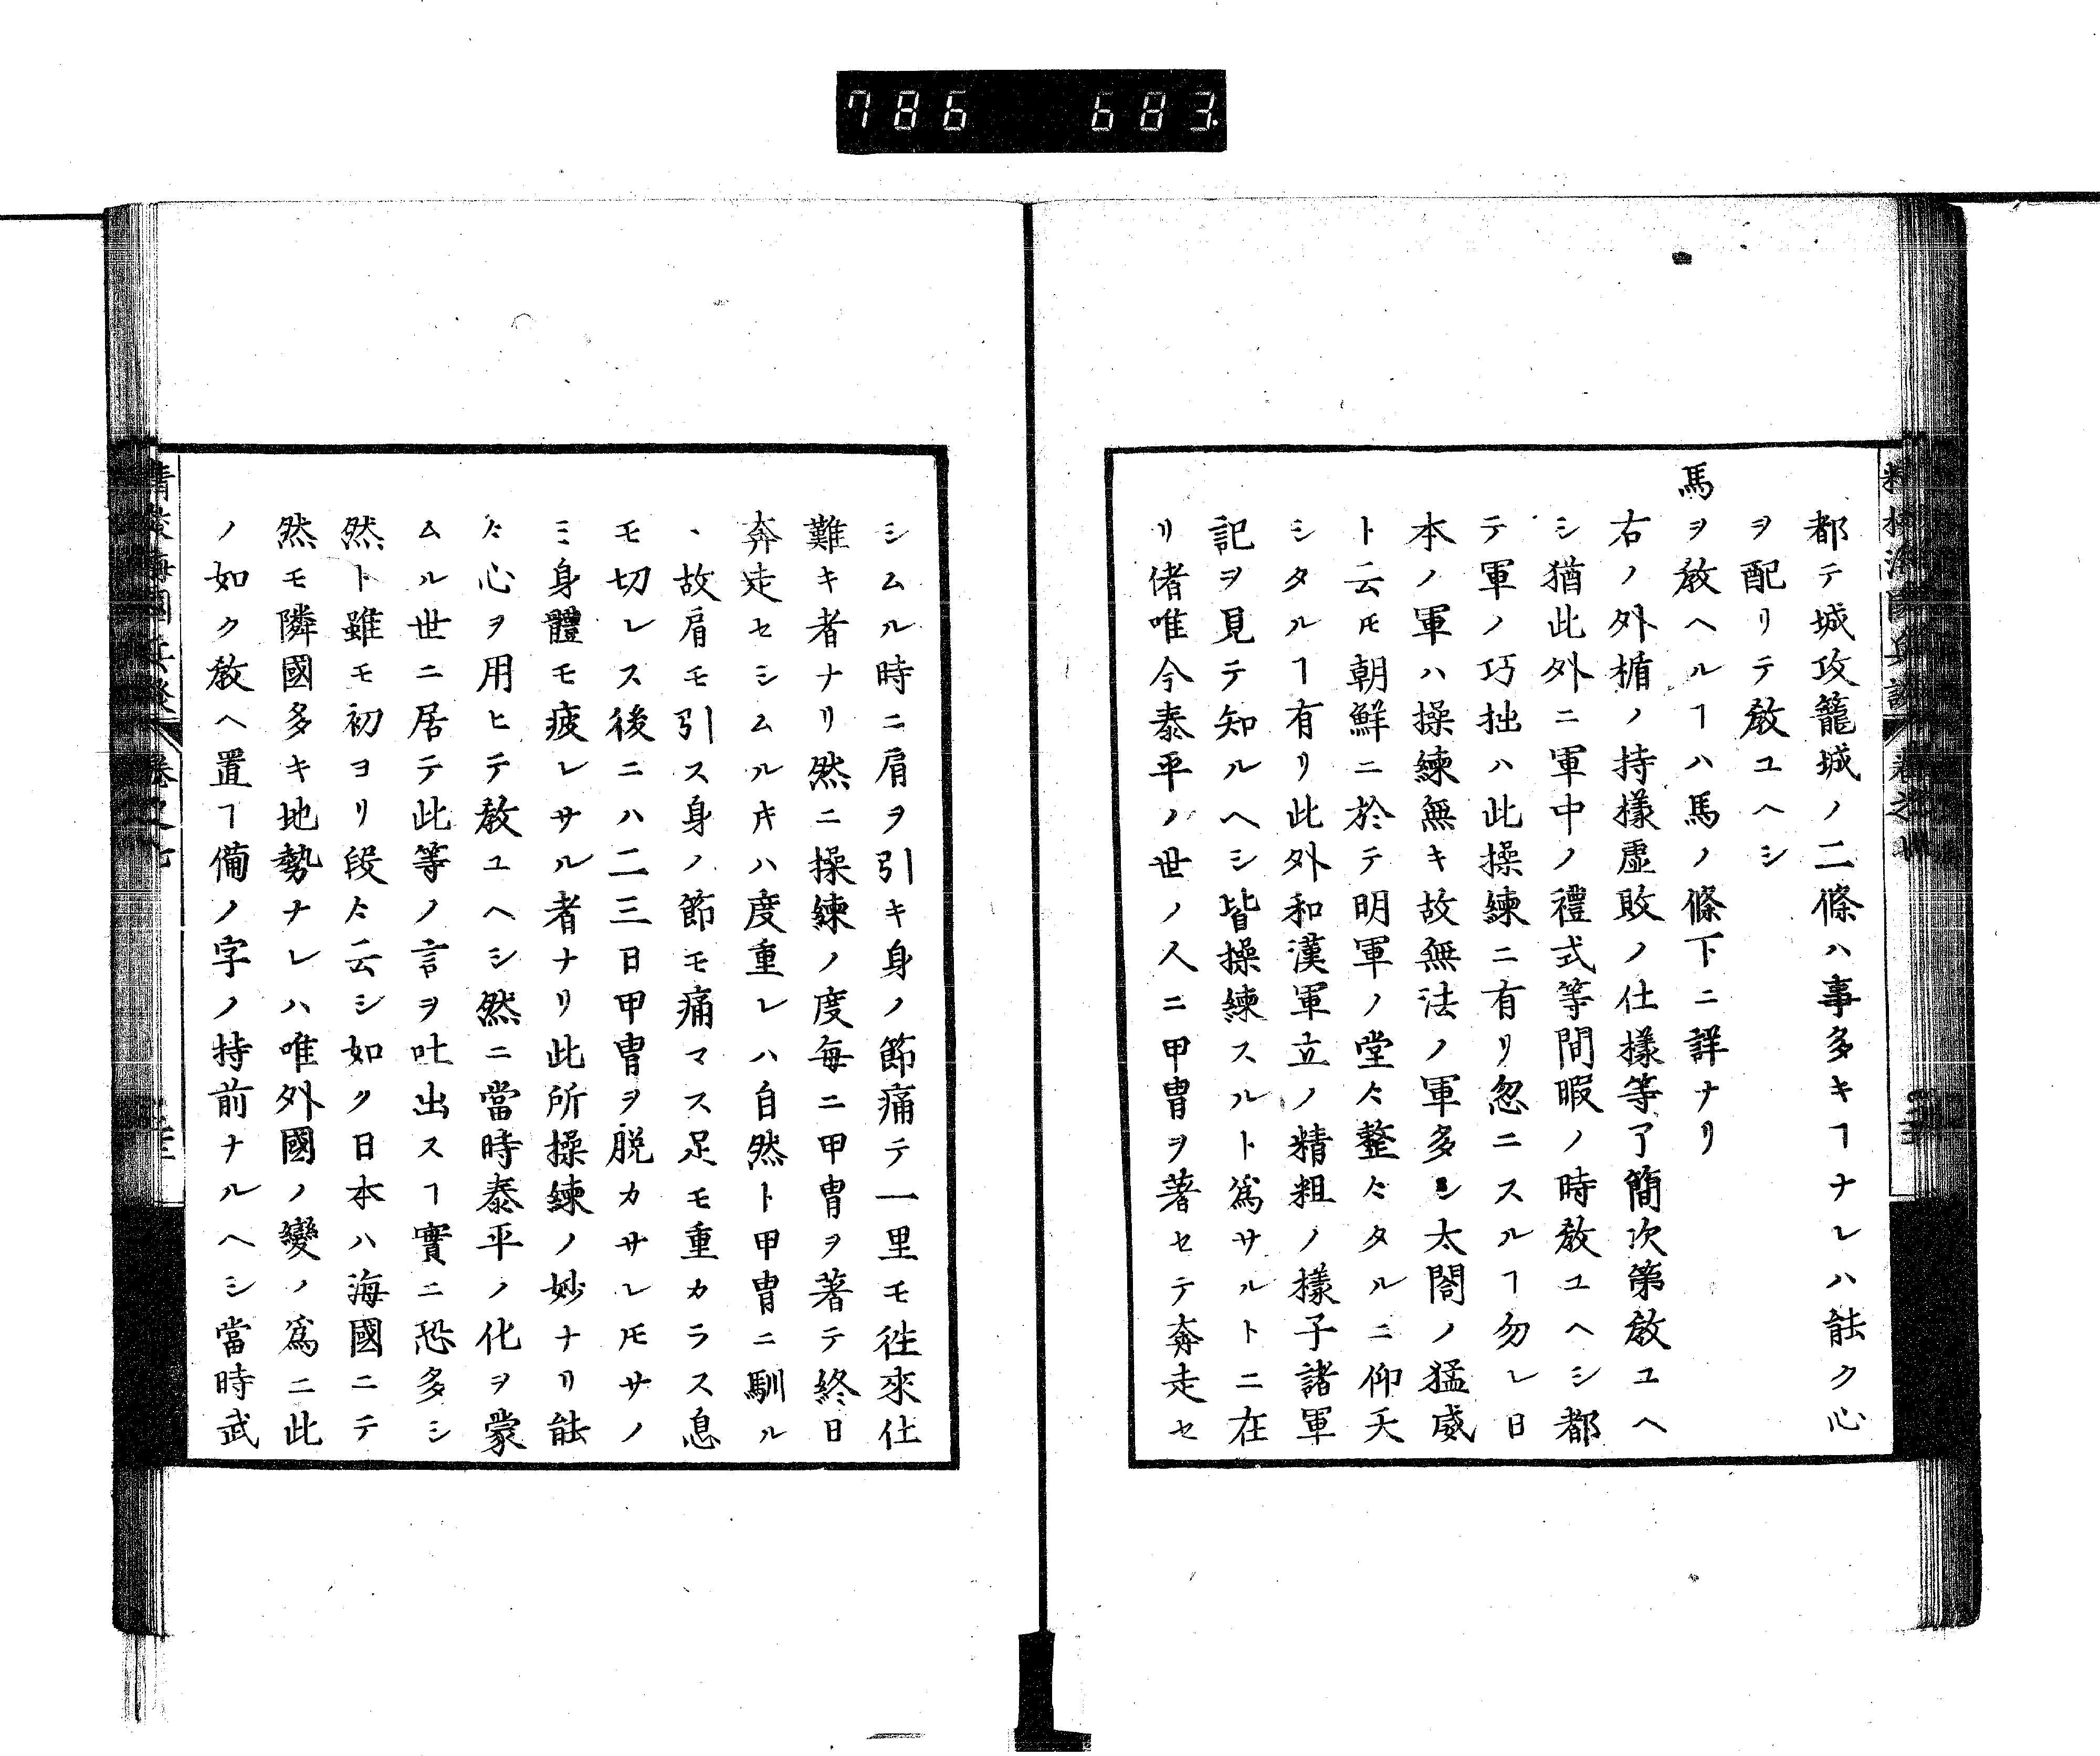 786 683.
都テ城攻籠城ノ二條ハ事多キヿナレハ能ク心
ヲ配リテ敎ユヘシ
馬ヲ敎ヘルヿハ馬ノ條下ニ詳ナリ
右ノ外楯ノ持樣虛敗ノ仕樣等了簡次第敎ユヘ
シ猶此外ニ軍中ノ禮式等間暇ノ時敎ユヘシ都
テ軍ノ巧拙ハ此操練ニ有リ忽ニスルヿ勿レ日
本ノ軍ハ操練無キ故無法ノ軍多シ太閤ノ猛威
ト云𪜈朝鮮ニ於テ明軍ノ堂々整々タルニ仰天
シタルヿ有リ此外和漢軍立ノ精粗ノ樣子諸軍
記ヲ見テ知ルヘシ皆操練スルト爲サルトニ在
リ偖唯今泰平ノ世ノ人ニ甲冑ヲ著セテ奔走セ
シムル時ニ肩ヲ引キ身ノ節痛テ一里モ往來仕
難キ者ナリ然ニ操練ノ度每ニ甲冑ヲ著テ終日
奔走セシムルキハ度重レハ自然ト甲冑ニ馴ル
、故肩モ引ス身ノ節モ痛マス足モ重カラス息
モ切レス後ニハ二三日甲冑ヲ脱カサレ𪜈サノ
ミ身體モ疲レサル者ナリ此所操練ノ妙ナリ能
々心ヲ用ヒテ敎ユヘシ然ニ當時泰平ノ化ヲ蒙
ムル世ニ居テ此等ノ言ヲ吐出スヿ實ニ恐多シ
然ト雖モ初ヨリ段々云シ如ク日本ハ海國ニテ
然モ隣國多キ地勢ナレハ唯外國ノ變ノ爲ニ此
ノ如ク敎ヘ置ヿ備ノ字ノ持前ナルヘシ當時武
海國兵 卷之七